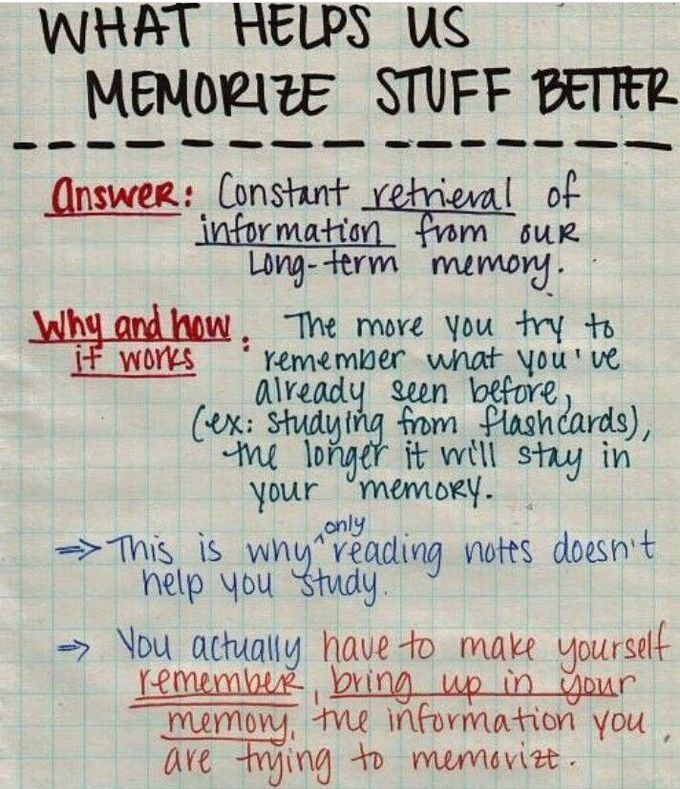 WHAT HELPS US
MEMORIZE STUFF BETTER
Answer: Constant retrieval of
information from our
Long-term memory.
Why and how it works: The more you try to
remember what you've
already seen before,
(ex: studying from flashcards),
the longer it will stay in
your memory.
⇒ This is why only reading notes doesn't
help you study.
⇒ You actually have to make yourself
remember, bring up in your
memory, the information you
are trying to memorize.